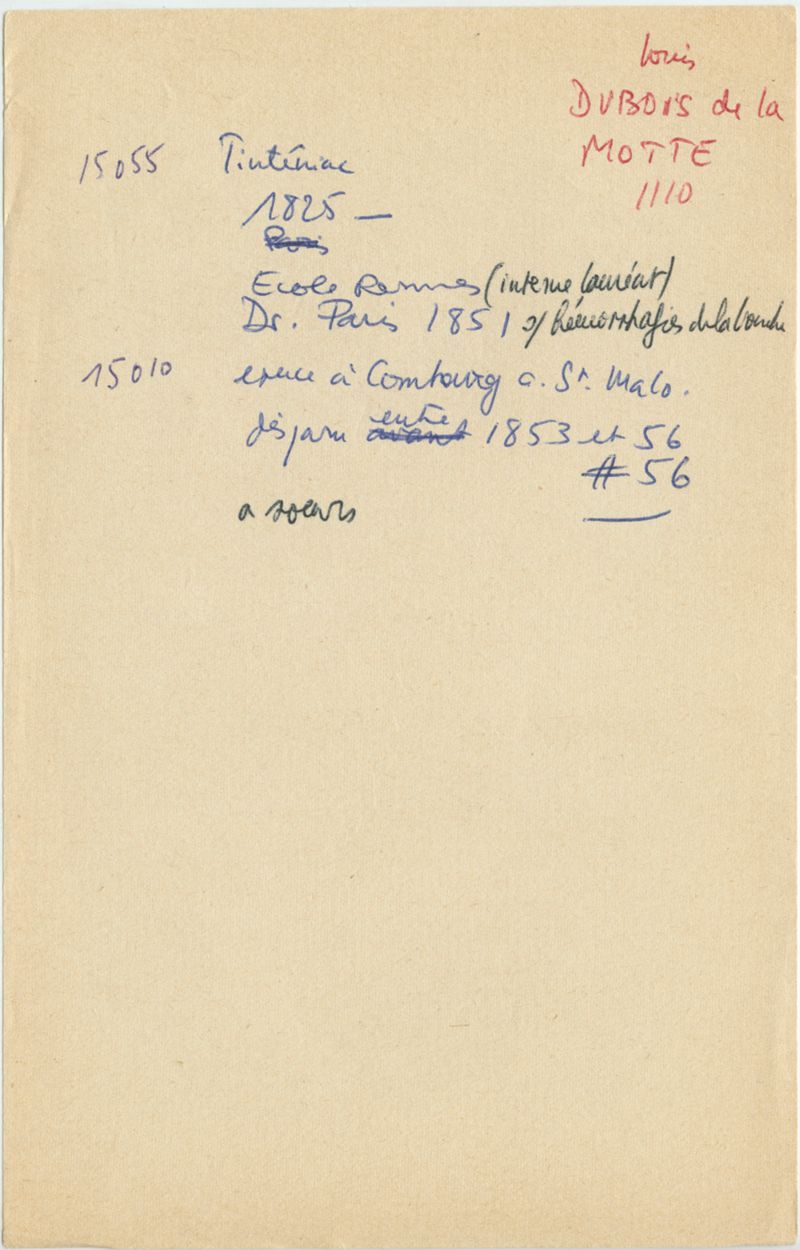 Louis
DUBOIS de la
MOTTE
1110
15055 Tinténiac
1825 —
Paris
Ecole Rennes (interne lauréat)
Dr. Paris 1851 s/ hémorrhagies de la bouche
15010 exerce à Combourg a. St. Malo.
disparu avant entre 1853 et 56
# 56
a soeurs